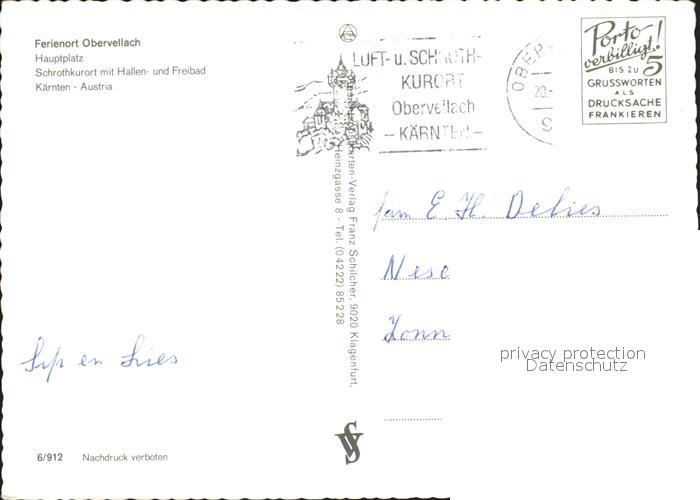 Ferienort Obervellach
Hauptplatz
Schrothkurort mit Hallen- und Freibad
Kärnten · Austria
LUFT- u. SCHROTH-
KURORT
Obervellach
– KÄRNTEN –
OBER
20.-
Porto
verbilligt!
BIS ZU 5
GRUSSWORTEN
ALS
DRUCKSACHE
FRANKIEREN
karten-Verlag Franz Schilcher, 9020 Klagenfurt,
Heinzgasse 8 · Tel. (0 42 22) 8 52 28
fam E. H. Delies
privacy protection
Datenschutz
en
6/912 Nachdruck verboten